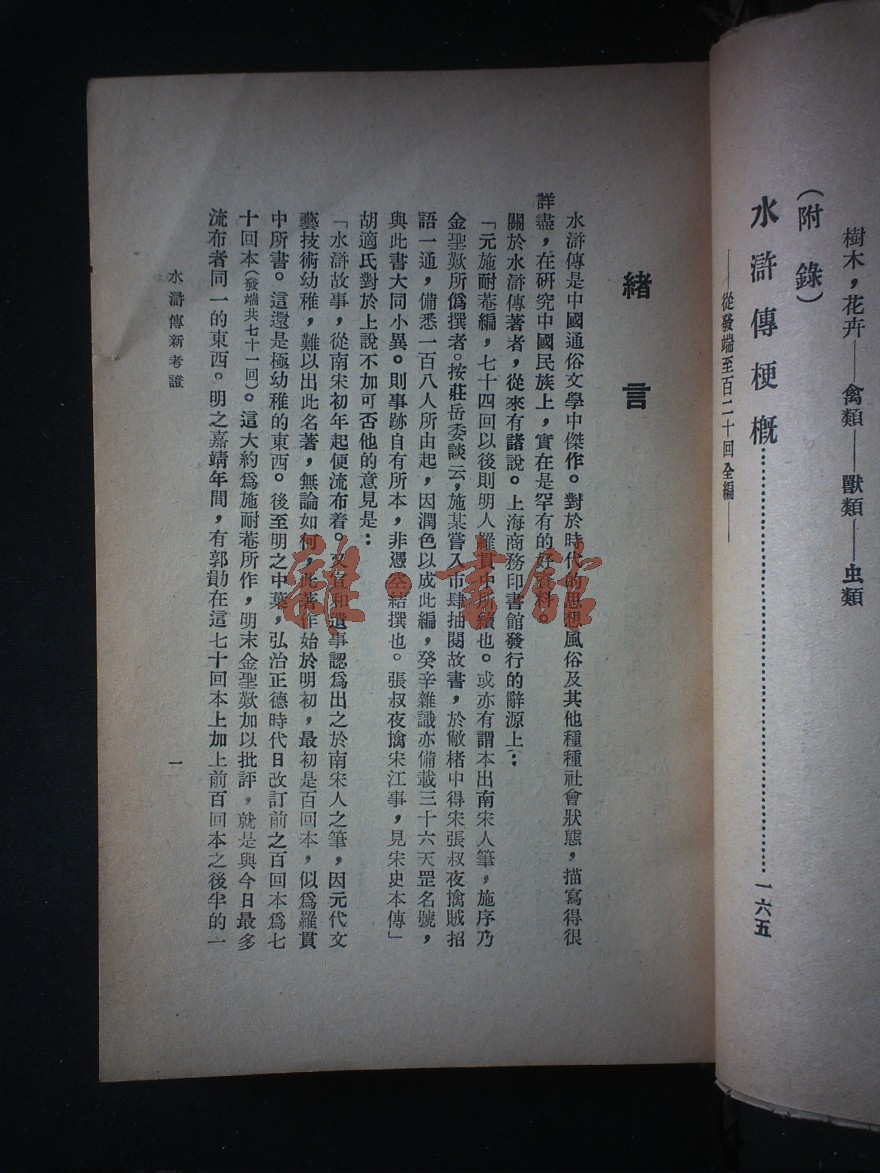 樹木，花卉——禽類——獸類——虫類
（附錄）
水滸傳梗概……一六五
——從發端至百二十回全編——
緒言
水滸傳是中國通俗文學中傑作。對於時代的思想風俗及其他種種社會狀態，描寫得很
詳盡，在硏究中國民族上，實在是罕有的好資料。
關於水滸傳著者，從來有諸說。上海商務印書館發行的辭源上：
「元施耐菴編，七十四回以後則明人羅貫中所續也。或亦有謂本出南宋人筆，施序乃
金聖歎所僞撰者。按莊岳委談云，施某嘗入市肆抽閱故書，於敝楮中得宋張叔夜擒賊招
語一通，備悉一百八人所由起，因潤色以成此編，癸辛雜識亦備載三十六天罡名號，
與此書大同小異。則事跡自有所本，非憑空結撰也。張叔夜擒宋江事，見宋史本傳」
胡適氏對於上說不加可否他的意見是：
「水滸故事，從南宋初年起便流布着。又宣和遺事認爲出之於南宋人之筆，因元代文
藝技術幼稚，難以出此名著，無論如何，此著作始於明初，最初是百回本，似爲羅貫
中所書。這還是極幼稚的東西。後至明之中葉，弘治正德時代日改訂前之百回本爲七
十回本（發端共七十一回）。這大約爲施耐菴所作，明末金聖歎加以批評，就是與今日最多
流布者同一的東西。明之嘉靖年間，有郭勛在這七十回本上加上前百回本之後半的一
水滸傳新考證
一
雜·書館